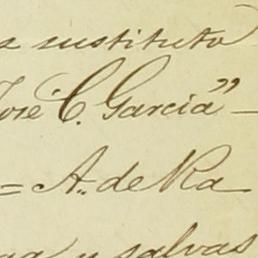 s sustituto
José C. Garcia” —
= A. de Ra
y salvas